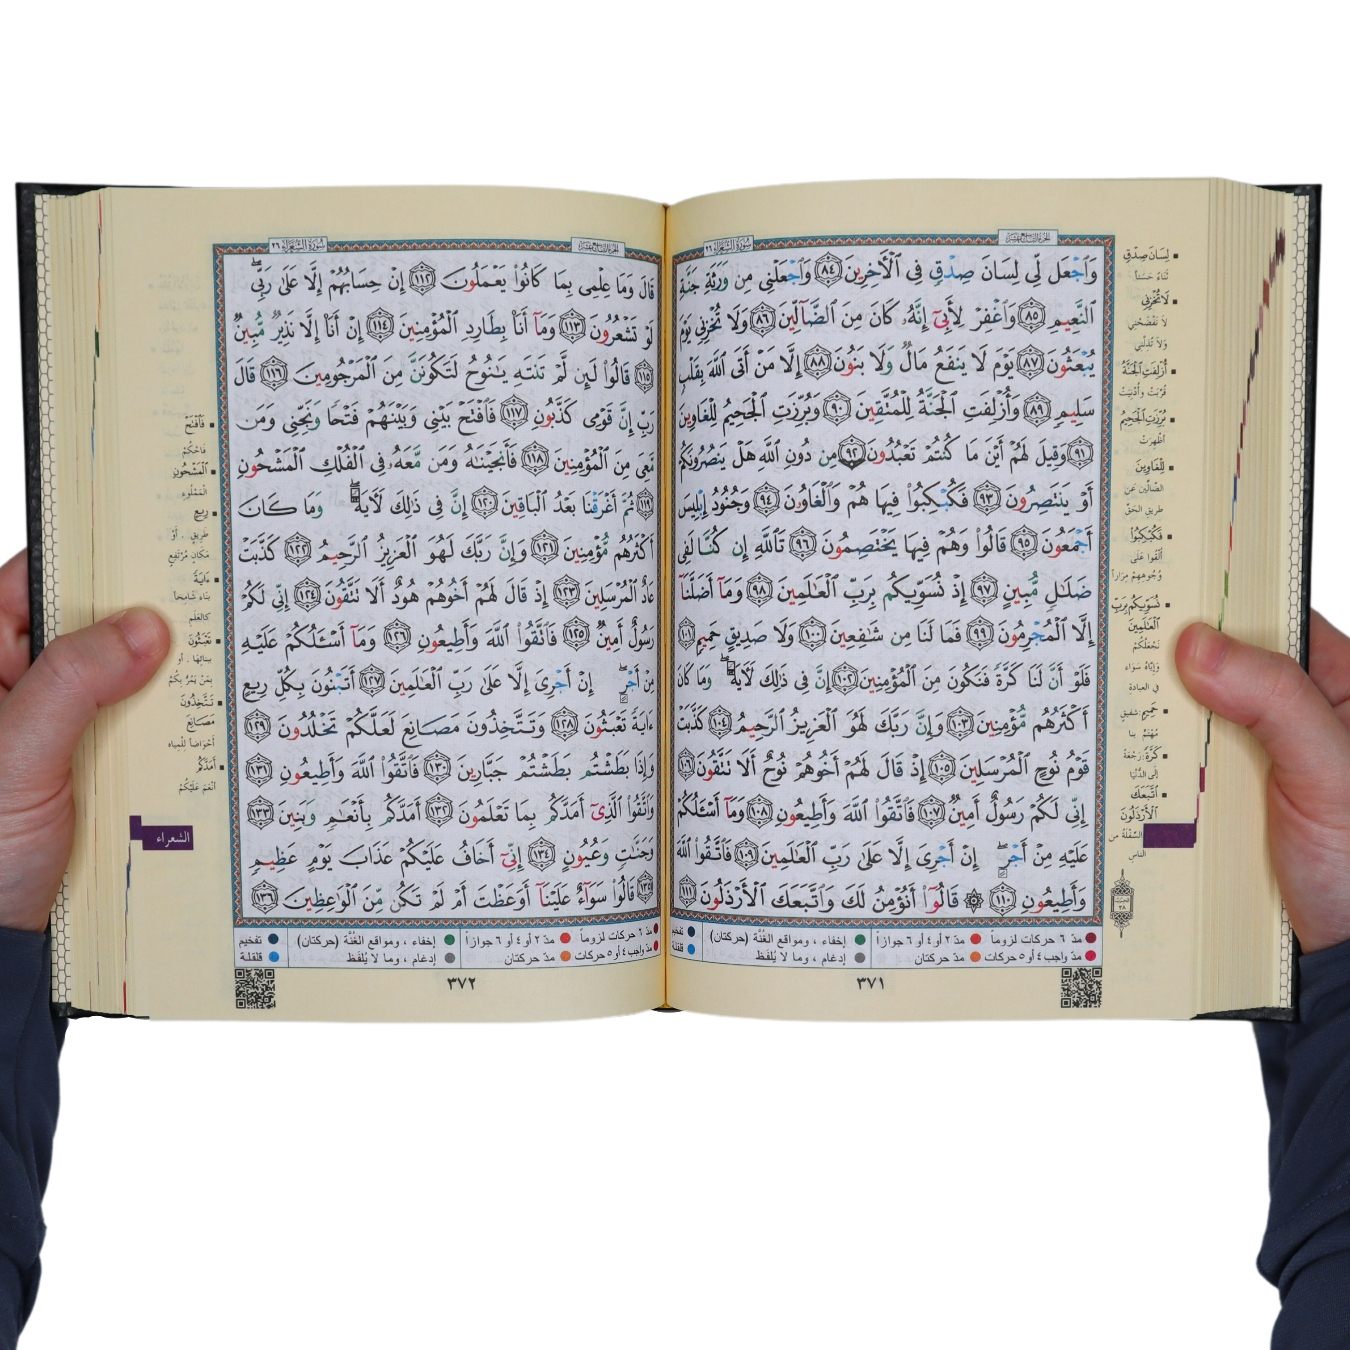 سورة الشعراء ٢٦
الجزء التاسع عشر
وَٱجۡعَل لِّي لِسَانَ صِدۡقٖ فِي ٱلۡأٓخِرِينَ ٨٤ وَٱجۡعَلۡنِي مِن وَرَثَةِ جَنَّةِ
ٱلنَّعِيمِ ٨٥ وَٱغۡفِرۡ لِأَبِيٓ إِنَّهُۥ كَانَ مِنَ ٱلضَّآلِّينَ ٨٦ وَلَا تُخۡزِنِي يَوۡمَ
يُبۡعَثُونَ ٨٧ يَوۡمَ لَا يَنفَعُ مَالٞ وَلَا بَنُونَ ٨٨ إِلَّا مَنۡ أَتَى ٱللَّهَ بِقَلۡبٖ
سَلِيمٖ ٨٩ وَأُزۡلِفَتِ ٱلۡجَنَّةُ لِلۡمُتَّقِينَ ٩٠ وَبُرِّزَتِ ٱلۡجَحِيمُ لِلۡغَاوِينَ
٩١ وَقِيلَ لَهُمۡ أَيۡنَ مَا كُنتُمۡ تَعۡبُدُونَ ٩٢ مِن دُونِ ٱللَّهِ هَلۡ يَنصُرُونَكُمۡ
أَوۡ يَنتَصِرُونَ ٩٣ فَكُبۡكِبُواْ فِيهَا هُمۡ وَٱلۡغَاوُۥنَ ٩٤ وَجُنُودُ إِبۡلِيسَ
أَجۡمَعُونَ ٩٥ قَالُواْ وَهُمۡ فِيهَا يَخۡتَصِمُونَ ٩٦ تَٱللَّهِ إِن كُنَّا لَفِي
ضَلَٰلٖ مُّبِينٍ ٩٧ إِذۡ نُسَوِّيكُم بِرَبِّ ٱلۡعَٰلَمِينَ ٩٨ وَمَآ أَضَلَّنَآ
إِلَّا ٱلۡمُجۡرِمُونَ ٩٩ فَمَا لَنَا مِن شَٰفِعِينَ ١٠٠ وَلَا صَدِيقٍ حَمِيمٖ ١٠١
فَلَوۡ أَنَّ لَنَا كَرَّةٗ فَنَكُونَ مِنَ ٱلۡمُؤۡمِنِينَ ١٠٢ إِنَّ فِي ذَٰلِكَ لَأٓيَةٗۖ وَمَا كَانَ
أَكۡثَرُهُم مُّؤۡمِنِينَ ١٠٣ وَإِنَّ رَبَّكَ لَهُوَ ٱلۡعَزِيزُ ٱلرَّحِيمُ ١٠٤ كَذَّبَتۡ
قَوۡمُ نُوحٍ ٱلۡمُرۡسَلِينَ ١٠٥ إِذۡ قَالَ لَهُمۡ أَخُوهُمۡ نُوحٌ أَلَا تَتَّقُونَ ١٠٦
إِنِّي لَكُمۡ رَسُولٌ أَمِينٞ ١٠٧ فَٱتَّقُواْ ٱللَّهَ وَأَطِيعُونِ ١٠٨ وَمَآ أَسۡـَٔلُكُمۡ
عَلَيۡهِ مِنۡ أَجۡرٍۖ إِنۡ أَجۡرِيَ إِلَّا عَلَىٰ رَبِّ ٱلۡعَٰلَمِينَ ١٠٩ فَٱتَّقُواْ ٱللَّهَ
وَأَطِيعُونِ ١١٠ ۞ قَالُوٓاْ أَنُؤۡمِنُ لَكَ وَٱتَّبَعَكَ ٱلۡأَرۡذَلُونَ ١١١
لِسَانَ صِدْقٍ
ثَنَاءً حَسَناً
لَا تُخْزِنِي
لا تَفْضَحْنِي
وَلَا تُذِلَّنِي
أُزْلِفَتِ الْجَنَّةُ
قُرِّبَتْ وَأُدْنِيَتْ
بُرِّزَتِ الْجَحِيمُ
أُظْهِرَتْ
لِلْغَاوِينَ
الضَّالِّينَ عَنْ
طريق الحَقِّ
فَكُبْكِبُوا
أُلْقُوا عَلَى
وُجُوهِهِمْ مِرَاراً
نُسَوِّيكُم بِرَبِّ
الْعَالَمِينَ
نَجْعَلُكُمْ
وَإِيَّاهُ سَوَاء
في العبادةِ
حَمِيمٍ: شفيقٍ
مُهْتَمٍّ بنا
كَرَّةً: رَجْعَةً
إلى الدُّنْيَا
اتَّبَعَكَ
الْأَرْذَلُونَ
السَّفَلَةُ من
الناس
مدّ ٦ حركات لزوماً مدّ ٢ أو ٤ أو ٦ جوازاً إخفاء ، ومواقع الغُنَّة (حركتان) تفخيم
مدّ واجب ٤ أو ٥ حركات مدّ حركتان إدغام ، وما لا يُلفَظ قلقلة
٣٧١
سورة الشعراء ٢٦
قَالَ وَمَا عِلۡمِي بِمَا كَانُواْ يَعۡمَلُونَ ١١٢ إِنۡ حِسَابُهُمۡ إِلَّا عَلَىٰ رَبِّيۖ
لَوۡ تَشۡعُرُونَ ١١٣ وَمَآ أَنَا۠ بِطَارِدِ ٱلۡمُؤۡمِنِينَ ١١٤ إِنۡ أَنَا۠ إِلَّا نَذِيرٞ مُّبِينٞ
١١٥ قَالُواْ لَئِن لَّمۡ تَنتَهِ يَٰنُوحُ لَتَكُونَنَّ مِنَ ٱلۡمَرۡجُومِينَ ١١٦ قَالَ
رَبِّ إِنَّ قَوۡمِي كَذَّبُونِ ١١٧ فَٱفۡتَحۡ بَيۡنِي وَبَيۡنَهُمۡ فَتۡحٗا وَنَجِّنِي وَمَن
مَّعِيَ مِنَ ٱلۡمُؤۡمِنِينَ ١١٨ فَأَنجَيۡنَٰهُ وَمَن مَّعَهُۥ فِي ٱلۡفُلۡكِ ٱلۡمَشۡحُونِ
١١٩ ثُمَّ أَغۡرَقۡنَا بَعۡدُ ٱلۡبَاقِينَ ١٢٠ إِنَّ فِي ذَٰلِكَ لَأٓيَةٗۖ وَمَا كَانَ
أَكۡثَرُهُم مُّؤۡمِنِينَ ١٢١ وَإِنَّ رَبَّكَ لَهُوَ ٱلۡعَزِيزُ ٱلرَّحِيمُ ١٢٢ كَذَّبَتۡ
عَادٌ ٱلۡمُرۡسَلِينَ ١٢٣ إِذۡ قَالَ لَهُمۡ أَخُوهُمۡ هُودٌ أَلَا تَتَّقُونَ ١٢٤ إِنِّي لَكُمۡ
رَسُولٌ أَمِينٞ ١٢٥ فَٱتَّقُواْ ٱللَّهَ وَأَطِيعُونِ ١٢٦ وَمَآ أَسۡـَٔلُكُمۡ عَلَيۡهِ
مِنۡ أَجۡرٍۖ إِنۡ أَجۡرِيَ إِلَّا عَلَىٰ رَبِّ ٱلۡعَٰلَمِينَ ١٢٧ أَتَبۡنُونَ بِكُلِّ رِيعٍ
ءَايَةٗ تَعۡبَثُونَ ١٢٨ وَتَتَّخِذُونَ مَصَانِعَ لَعَلَّكُمۡ تَخۡلُدُونَ ١٢٩
وَإِذَا بَطَشۡتُم بَطَشۡتُمۡ جَبَّارِينَ ١٣٠ فَٱتَّقُواْ ٱللَّهَ وَأَطِيعُونِ ١٣١
وَٱتَّقُواْ ٱلَّذِيٓ أَمَدَّكُم بِمَا تَعۡلَمُونَ ١٣٢ أَمَدَّكُم بِأَنۡعَٰمٖ وَبَنِينَ ١٣٣
وَجَنَّٰتٖ وَعُيُونٍ ١٣٤ إِنِّيٓ أَخَافُ عَلَيۡكُمۡ عَذَابَ يَوۡمٍ عَظِيمٖ
١٣٥ قَالُواْ سَوَآءٌ عَلَيۡنَآ أَوَعَظۡتَ أَمۡ لَمۡ تَكُن مِّنَ ٱلۡوَٰعِظِينَ ١٣٦
فَافْتَحْ
فَاحْكُمْ
الْمَشْحُونِ
المَمْلُوءِ
رِيعٍ
طَرِيقٍ ، أَوْ
مَكَانٍ مُرْتَفِعٍ
ءَايَةً
بناءً شَامِخاً
كالعَلَمِ
تَعْبَثُونَ
ببنائِها ، أو
بِمَنْ يَمُرُّ بِكُمْ
تَتَّخِذُونَ
مَصَانِعَ
أَحْوَاضاً لِلْمِياه
أَمَدَّكُم
أَنْعَمَ عَلَيْكُمْ
الشعراء
مدّ ٦ حركات لزوماً مدّ ٢ أو ٤ أو ٦ جوازاً إخفاء ، ومواقع الغُنَّة (حركتان) تفخيم
مدّ واجب ٤ أو ٥ حركات مدّ حركتان إدغام ، وما لا يُلفَظ قلقلة
٣٧٢